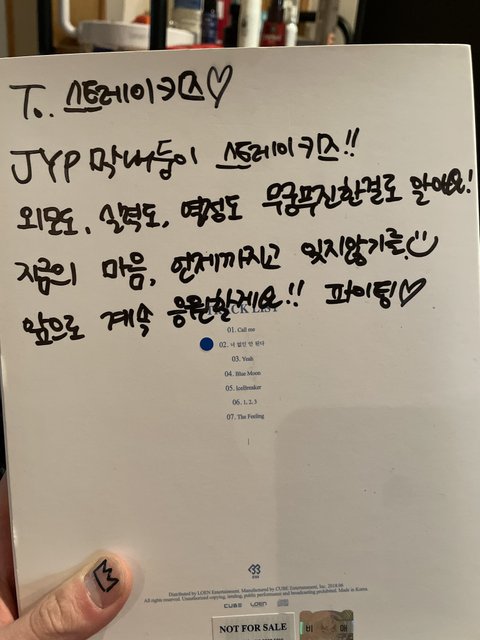 To. 스트레이키즈♡
JYP 막내둥이 스트레이키즈!!
외모도, 실력도, 열정도 무궁무진한걸로 알아요!
지금의 마음, 언제까지고 잊지않기를. ☺
앞으로 계속 응원할게요!! 파이팅♡
TRACK LIST
01. Call me
02. 너 없인 안 된다
03. Yeah
04. Blue Moon
05. IceBreaker
06. 1, 2, 3
07. The Feeling
Distributed by LOEN Entertainment, Manufactured by CUBE Entertainment, Inc. 2018.06
All rights reserved. Unauthorized copying, lending, public performance and broadcasting prohibited. Made in Korea.
CUBE LOEN
NOT FOR SALE
비 매